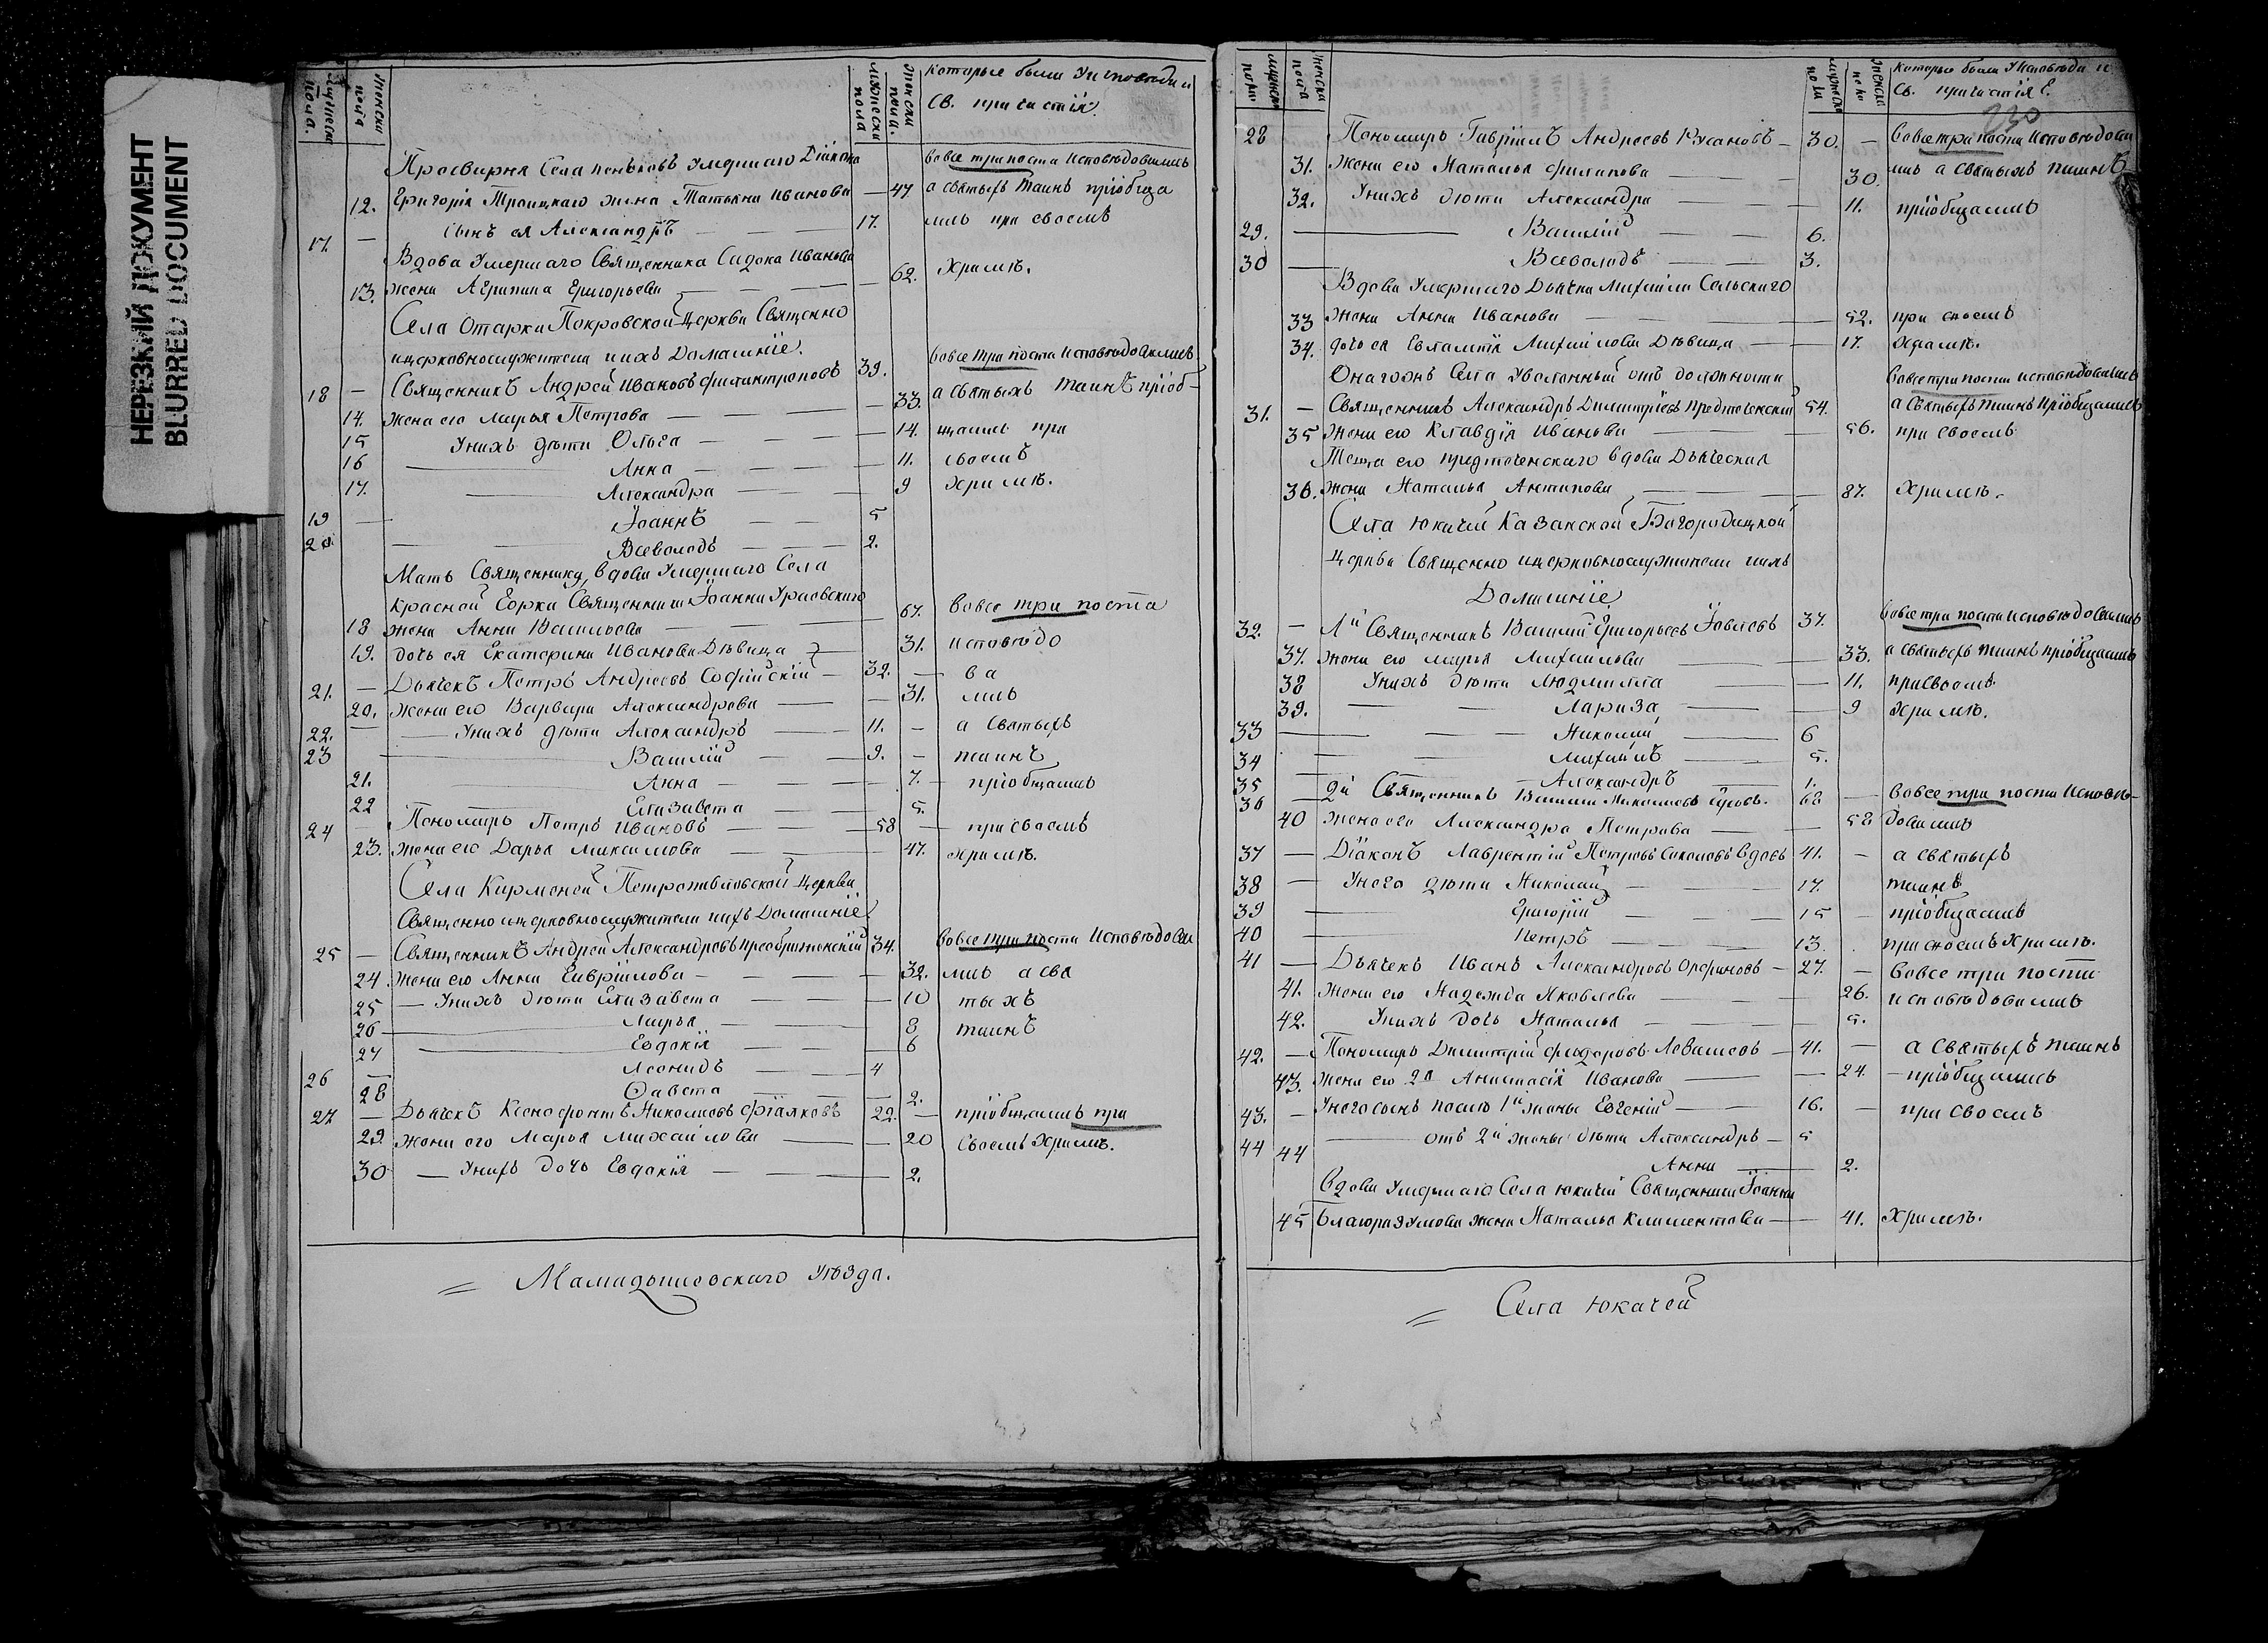 НЕРЕЗКИЙ ДОКУМЕНТ
BLURRED DOCUMENT
Мужески пола. Женски пола Мужески пола Женски пола. которые были У исповеди и
Св. причастія.
Просвирня Села Умершаго Діакона вовсе три поста исповѣдовались
12. Григорія Троицкаго жена Татьяна Иванова — 47 а святыхъ таинъ пріобща
17. — Сынъ ея Александръ — — 17. лись при своемъ
Вдова Умершаго Священника Сидора Иванова
13. жена Агрипина Григорьева — — — 62. Храмѣ.
Села Отарки Покровской Церкви Священно
ицерковнослужители иихъ Домашніе.
18 — Священникъ Андрей Ивановъ Филантроповъ 39. вовсе три поста исповѣдовались
14. жена его Марья Петрова — — — 33. а святыхъ таинъ пріоб-
15 Унихъ дѣти Ольга — — — 14. щались при
16 — Анна — — — 11. своемъ
17. — Александра — — 9 храмѣ.
19 — Іоаннъ — — 5
20. — Всеволодъ — — 2.
Мать Священника, вдова Умершаго Села
Красной Горки Священника Іоанна
18 жена Анна Васильева — — — 67. вовсе три поста
19. дочь ея Екатерина Иванова Дѣвица — 31. исповѣдо
21. — Дьячекъ Петръ Андреевъ Софійскій — 32. — ва
20. жена его Варвара Александрова — — 31. лись
22. — Унихъ дѣти Александръ — 11. — а святыхъ
23 — Василій — — 9. — таинъ
21. — Анна — — — 7. — пріобщались
22 — Елизавета — — 5.
24 — Пономарь Петръ Ивановъ — — — 58 — при своемъ
23. жена его Дарья Максимова — — — 47. храмѣ.
Села Кирменей Петропавловской Церкви
Священно ицерковнослужители иихъ Домашніе.
25 — Священникъ Андрей Александровъ Преображенскій 34. вовсе три поста исповѣдова
24 жена его Анна Гавріилова — — — 32. лись а свя
25 — Унихъ дѣти Елизавета — — — 10 тыхъ
26 — Марья — — — 8 таинъ
27 — Евдокія — — — 6
26 — Леонидъ — — 4
28 Фавста — — — 2.
27 — Дьячекъ Ксенофонтъ Николаевъ Фіалковъ 22. — пріобщались при
29 жена его Марья Михайлова — — 20 своемъ храмѣ.
30 — Унихъ дочь Евдокія — — — 2.
= Мамадышевскаго Уѣзда.
Мужески полы Женски пола Мужеска полы Женска пола Которые были У Исповѣди и
Св. причастія.
230
28 Пономарь Гавріилъ Андреевъ Русановъ — 30. — вовсе три поста исповѣдова
31. жена его Наталья Филипова — — — 30. лись а святыхъ таинъ
32. Унихъ дѣти Александра — — — 11. пріобщались
29. — Василій — — 6.
30 — Всеволодъ — — 3.
Вдова Умершаго Дьячка Михаила Сельскаго
33 жена Анна Иванова — — — 52. при своемъ
34. дочь ея Евлампія Михайлова Дѣвица — — 17. храмѣ.
Онагожъ Села Уволенный отъ должности вовсе три поста исповѣдовались
31. — Священникъ Александръ Димитріевъ Предтеченскій 54. а святыхъ таинъ пріобщались
35 жена его Клавдія Иванова — — 56. при своемъ
Теща его Предтеченскаго вдова Дьяческая
36. жена Наталья Антипова — — — 87. Храмѣ.
Села Юкачей Казанской Богородицкой
церкви Священно ицерковнослужители иихъ
Домашніе
32. — 1й Священникъ Василій Григорьевъ 37. вовсе три поста исповѣдовались
37. жена его Марья Михайлова — — 33. а святыхъ таинъ пріобщались
38 Унихъ дѣти Людмилла — — 11. при своемъ
39. — — Лариза — — 9 храмѣ.
33 — — Николай — 6
34 — — Михаилъ — 5.
35 — — Александръ — 1.
36 — 2й Священникъ Василій Николаевъ 62 — вовсе три поста исповѣ-
40 жена его Александра Петрова — — 58 довались
37 — Діаконъ Лаврентій Петровъ Соколовъ вдовъ 41. — а святыхъ
38 — Унего дѣти Николай — — 17. таинъ
39 — Григорій — — 15 — пріобщались
40 — Петръ — — 13. при своемъ храмѣ.
41 — Дьячекъ Иванъ Александровъ — 27. — вовсе три поста
41. жена его Надежда Яковлева — — 26. исповѣдовались
42. Унихъ дочь Наталья — — 5.
42. — Пономарь Димитрій Федоровъ Левашевъ — 41. — а святыхъ таинъ
43. жена его 2я Анастасія Иванова — — 24. — пріобщались
43. — Унего сынъ послѣ 1й жены Евгеній — 16. — при своемъ
44 — отъ 2й жены дѣти Александръ — 5
44 Анна — 2.
Вдова Умершаго Села Юкачей Священника Іоанна
45 Благоразумова жена Наталья Климентова — — 41. Храмѣ.
= Села Юкачей